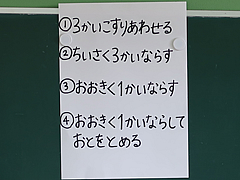 ①3かいこすりあわせる
②ちいさく3かいならす
③おおきく1かいならす
④おおきく1かいならして
おとをとめる